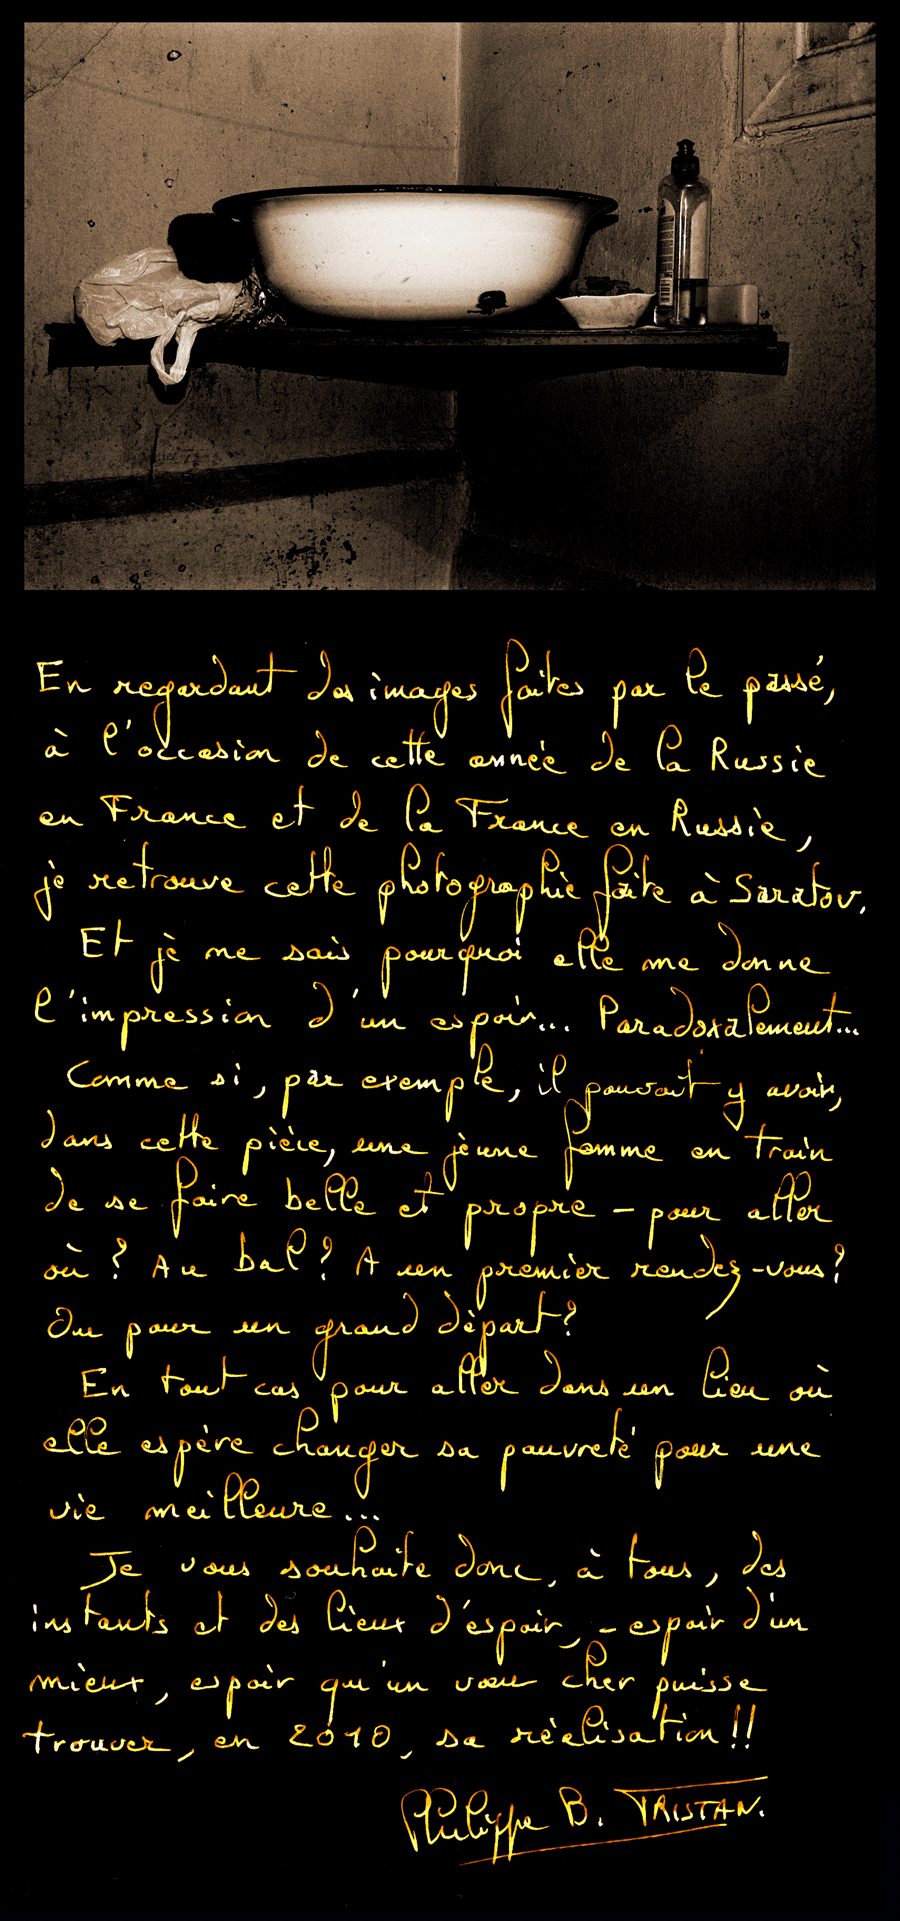 En regardant des images faites par le passé,
à l'occasion de cette année de la Russie
en France et de la France en Russie,
je retrouve cette photographie faite à Saratov.
Et je ne sais pourquoi elle me donne
l'impression d'un espoir... Paradoxalement...
Comme si, par exemple, il pouvait y avoir,
dans cette pièce, une jeune femme en train
de se faire belle et propre - pour aller
où ? Au bal ? A un premier rendez-vous ?
Ou pour un grand départ ?
En tout cas pour aller dans un lieu où
elle espère changer sa pauvreté pour une
vie meilleure...
Je vous souhaite donc, à tous, des
instants et des lieux d'espoir, - espoir d'un
mieux, espoir qu'un vœu cher puisse
trouver, en 2010, sa réalisation !!
Philippe B. TRISTAN.